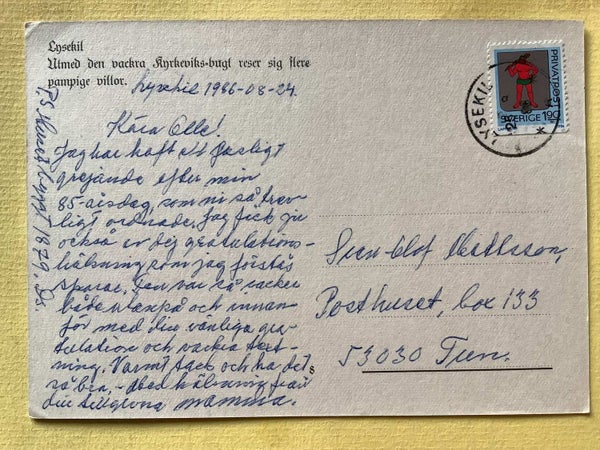 Lysekil
Utmed den vackra Kyrkeviks-bugt reser sig flere
pampige villor.
Lysekil 1986-08-24.
Kära Olle!
Jag har haft ett gasligt
grejande efter min
85-årsdag, som ni så trev-
ligt ordnade. Jag fick ju
också av dej gratulations-
hälsning som jag förstås
sparar. Den var så vacker
både utanpå och innan-
för med din vänliga gra-
tulation och vackra text-
ning. Varmt tack och ha det
så bra, - Med hälsning från
din tillgivna mamma.
PS. Huset byggt 1879. Ds.
8
PRIVATPOST
SVERIGE 190
LYSEKIL
Sven-Olof Mattsson,
Posthuset, box 133
53030 Tun.